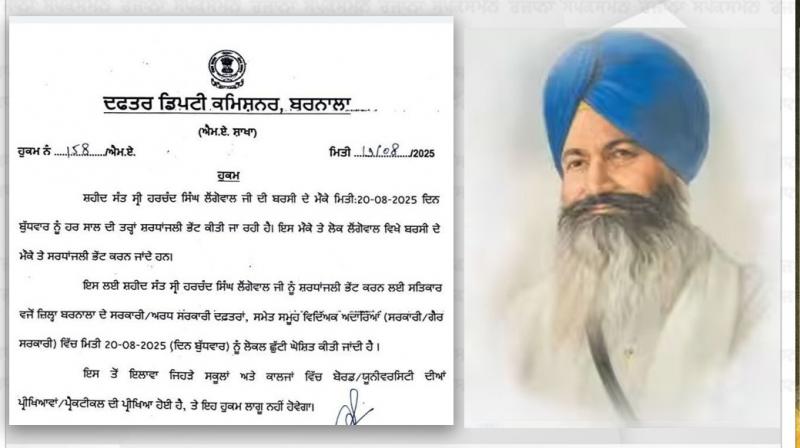 ਦਫਤਰ ਡਿਪਟੀ ਕਮਿਸ਼ਨਰ, ਬਰਨਾਲਾ
(ਐਮ.ਏ. ਸ਼ਾਖਾ)
ਹੁਕਮ ਨੰ ....158..../ਐਮ.ਏ. ਮਿਤੀ ....19/08..../2025
ਹੁਕਮ
ਸ਼ਹੀਦ ਸੰਤ ਸ੍ਰੀ ਹਰਚੰਦ ਸਿੰਘ ਲੌਂਗੋਵਾਲ ਜੀ ਦੀ ਬਰਸੀ ਦੇ ਮੌਕੇ ਮਿਤੀ:20-08-2025 ਦਿਨ
ਬੁੱਧਵਾਰ ਨੂੰ ਹਰ ਸਾਲ ਦੀ ਤਰ੍ਹਾਂ ਸ਼ਰਧਾਂਜਲੀ ਭੇਂਟ ਕੀਤੀ ਜਾ ਰਹੀ ਹੈ। ਇਸ ਮੌਕੇ ਤੇ ਲੋਕ ਲੌਂਗੋਵਾਲ ਵਿਖੇ ਬਰਸੀ ਦੇ
ਮੌਕੇ ਤੇ ਸਰਧਾਂਜਲੀ ਭੇਂਟ ਕਰਨ ਜਾਂਦੇ ਹਨ।
ਇਸ ਲਈ ਸ਼ਹੀਦ ਸੰਤ ਸ੍ਰੀ ਹਰਚੰਦ ਸਿੰਘ ਲੌਂਗੋਵਾਲ ਜੀ ਨੂੰ ਸ਼ਰਧਾਂਜਲੀ ਭੇਂਟ ਕਰਨ ਲਈ ਸਤਿਕਾਰ
ਵਜੋਂ ਜ਼ਿਲ੍ਹਾ ਬਰਨਾਲਾ ਦੇ ਸਰਕਾਰੀ/ਅਰਧ ਸਰਕਾਰੀ ਦਫ਼ਤਰਾਂ, ਸਮੇਤ ਸਮੂਹ ਵਿਦਿਅਕ ਅਦਾਰਿਆਂ (ਸਰਕਾਰੀ/ਗੈਰ
ਸਰਕਾਰੀ) ਵਿੱਚ ਮਿਤੀ 20-08-2025 (ਦਿਨ ਬੁੱਧਵਾਰ) ਨੂੰ ਲੋਕਲ ਛੁੱਟੀ ਘੋਸ਼ਿਤ ਕੀਤੀ ਜਾਂਦੀ ਹੈ ।
ਇਸ ਤੋਂ ਇਲਾਵਾ ਜਿਹੜੇ ਸਕੂਲਾਂ ਅਤੇ ਕਾਲਜਾਂ ਵਿੱਚ ਬੋਰਡ/ਯੂਨੀਵਰਸਿਟੀ ਦੀਆਂ
ਪ੍ਰੀਖਿਆਵਾਂ/ਪ੍ਰੈਕਟੀਕਲ ਦੀ ਪ੍ਰੀਖਿਆ ਹੋਈ ਹੈ, ਤੇ ਇਹ ਹੁਕਮ ਲਾਗੂ ਨਹੀਂ ਹੋਵੇਗਾ।